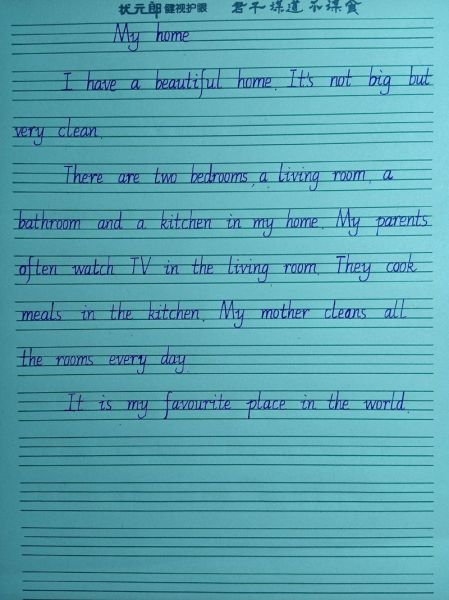 状元郎 健视护眼 君子谋道不谋食
My home
I have a beautiful home. It's not big but
very clean.
There are two bedrooms, a living room, a
bathroom and a kitchen in my home. My parents
often watch TV in the living room. They cook
meals in the kitchen. My mother cleans all
the rooms every day.
It is my favourite place in the world.